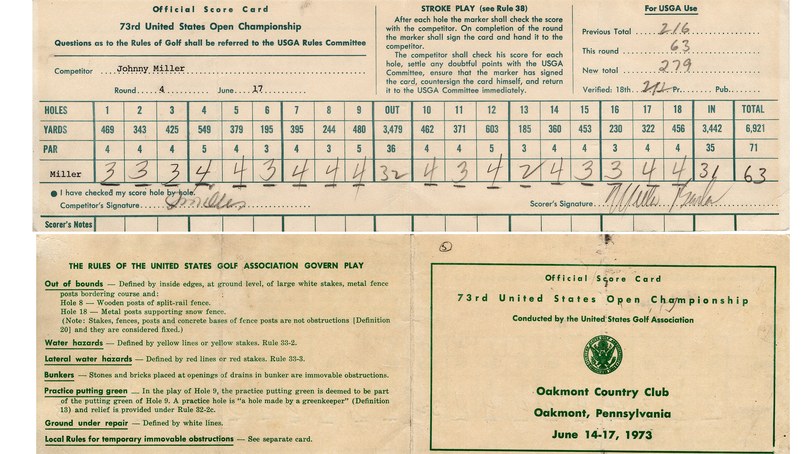 Official Score Card
73rd United States Open Championship
Questions as to the Rules of Golf shall be referred to the USGA Rules Committee
Competitor Johnny Miller
Round 4 June 17
STROKE PLAY (see Rule 38)
After each hole the marker shall check the score
with the competitor. On completion of the round
the marker shall sign the card and hand it to the
competitor.
The competitor shall check his score for each
hole, settle any doubtful points with the USGA
Committee, ensure that the marker has signed
the card, countersign the card himself, and return
it to the USGA Committee immediately.
For USGA Use
Previous Total 216
This round 63
New total 279
Verified: 18th. Pr. Pub.
HOLES 1 2 3 4 5 6 7 8 9 OUT 10 11 12 13 14 15 16 17 18 IN TOTAL
YARDS 469 343 425 549 379 195 395 244 480 3,479 462 371 603 185 360 453 230 322 456 3,442 6,921
PAR 4 4 4 5 4 3 4 3 5 36 4 4 5 3 4 4 3 4 4 35 71
Miller 3 3 3 4 4 3 4 4 4 32 4 3 4 2 4 3 3 4 4 31 63
I have checked my score hole by hole.
Competitor's Signature
Scorer's Signature
Scorer's Notes
THE RULES OF THE UNITED STATES GOLF ASSOCIATION GOVERN PLAY
Out of bounds — Defined by inside edges, at ground level, of large white stakes, metal fence
posts bordering course and:
Hole 8 — Wooden posts of split-rail fence.
Hole 18 — Metal posts supporting snow fence.
(Note: Stakes, fences, posts and concrete bases of fence posts are not obstructions [Definition
20] and they are considered fixed.)
Water hazards — Defined by yellow lines or yellow stakes. Rule 33-2.
Lateral water hazards — Defined by red lines or red stakes. Rule 33-3.
Bunkers — Stones and bricks placed at openings of drains in bunker are immovable obstructions.
Practice putting green — In the play of Hole 9, the practice putting green is deemed to be part
of the putting green of Hole 9. A practice hole is "a hole made by a greenkeeper" (Definition
13) and relief is provided under Rule 32-2c.
Ground under repair — Defined by white lines.
Local Rules for temporary immovable obstructions — See separate card.
Official Score Card
73rd United States Open Championship
Conducted by the United States Golf Association
Oakmont Country Club
Oakmont, Pennsylvania
June 14-17, 1973